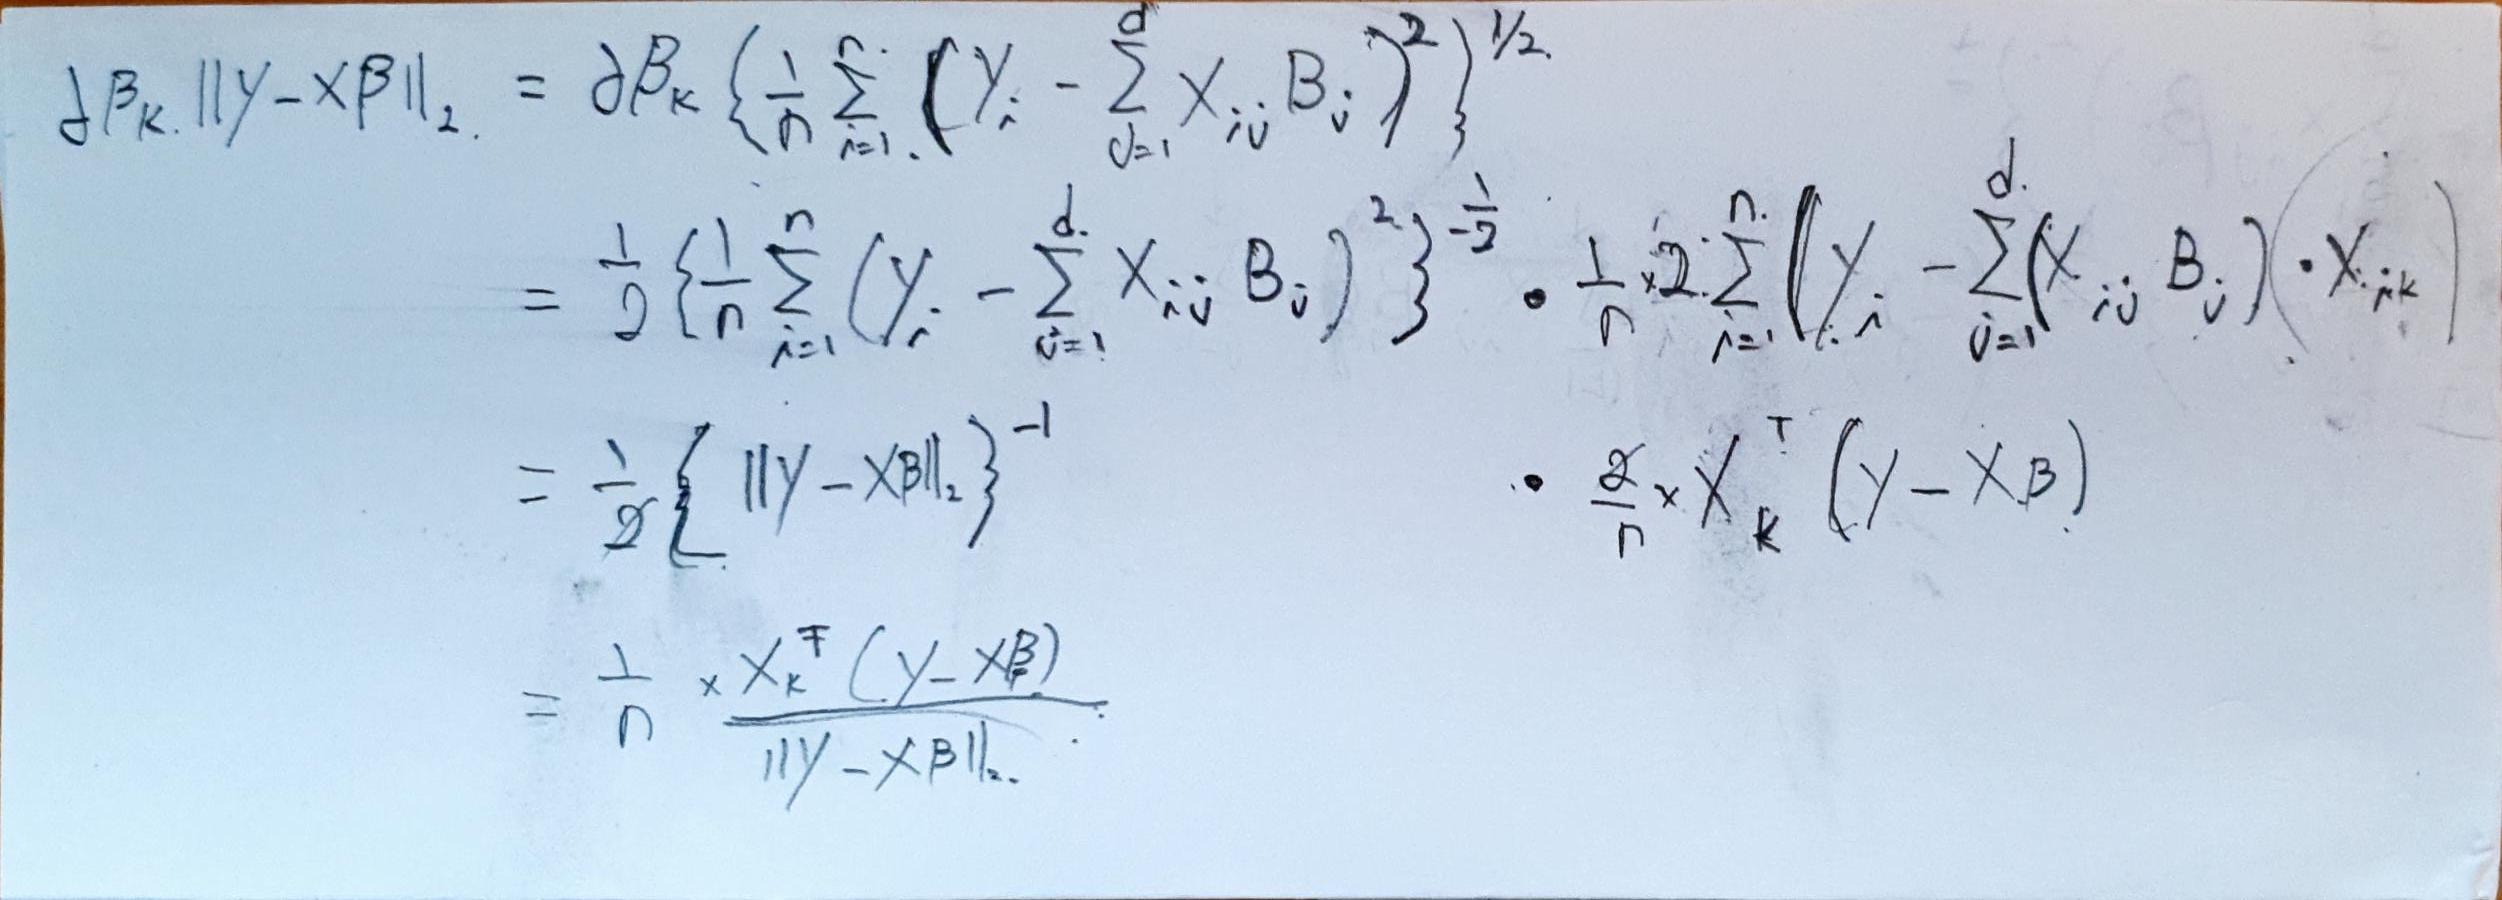 ∂β_k ||Y-Xβ||_2 = ∂β_k {1/n Σ_{i=1}^{n} (Y_i - Σ_{j=1}^{d} X_{ij} B_j)^2}^{1/2}
= 1/2 {1/n Σ_{i=1}^{n} (Y_i - Σ_{j=1}^{d} X_{ij} B_j)^2}^{-1/2} · 1/n × 2 Σ_{i=1}^{n} (Y_i - Σ_{j=1}^{d} (X_{ij} B_j) (·X_{ik})
= 1/2 {||Y-Xβ||_2}^{-1} · 2/n × X_k^T (Y-Xβ)
= 1/n × X_k^T (Y-Xβ) / ||Y-Xβ||_2